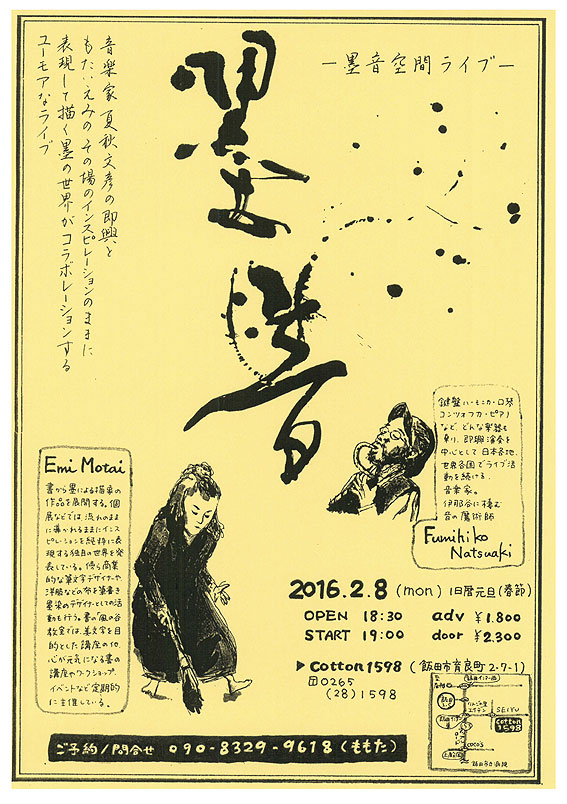 墨音
―墨音空間ライブ―
音楽家 夏秋文彦の即興と
もたい・えみの その場のインスピレーションのままに
表現して描く墨の世界がコラボレーションする
ユーモアなライブ
鍵盤ハーモニカ・口琴
など、どんな楽器も
中心として 日本各地、
世界各国でライブ活
動を続ける
音楽家。
伊那谷に棲む
音の魔術師
Fumihiko
Natsuaki
Emi Motai
書から墨による描象の
作品を展開する。個
展などでは、流れのまま
に導かれるままにインス
ピレーションを純粋に表
現する独自の世界を発
表している。傍ら商業
的な筆文字デザイナーや
洋服などの布を筆書き
墨染のデザイナーとしての活
動も行う。書の「風の谷
教室」では、美文字を目
的とした講座の他、
心が元気になる書の
講座やワークショップ、
イベントなど定期的
に主催している。
2016.2.8 (mon) 旧暦元旦(春節)
OPEN 18:30 adv ¥1.800
START 19:00 door ¥2.300
▶ Cotton1598 (飯田市育良町2-9-1)
0265
(28)1598
飯田インター
SEIYU
cotton
1598
coco's
ご予約/問合せ 090-8329-9618 (ももた)